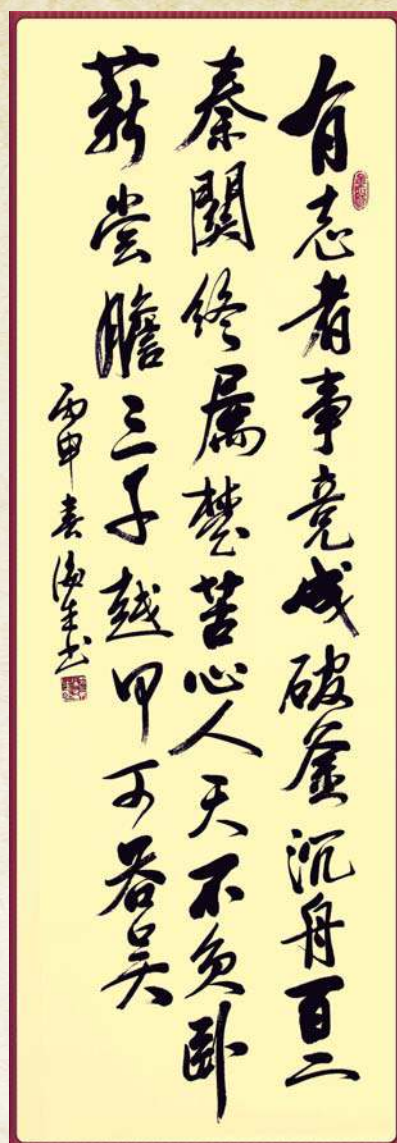 有志者事竟成破釜沉舟百二
秦關终属楚苦心人天不负卧
薪尝膽三千越甲可吞吴
丙申春海生书